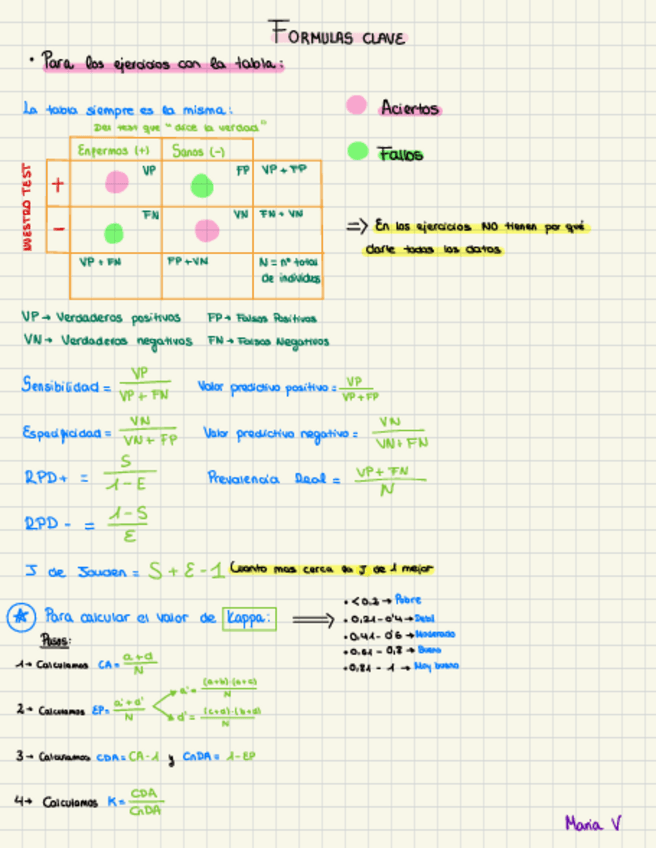 FORMULAS CLAVE
· Para los ejercicios con la tabla:
La tabla siempre es la misma:
Del test que "dice la verdad"
Aciertos
Fallos
Enfermos (+) Sanos (-)
NUESTRO TEST
+ VP FP VP + FP
- FN VN FN + VN
VP + FN FP + VN N = nº total de individuos
=> En los ejercicios NO tienen por qué
darte todos los datos
VP → Verdaderos positivos FP → Falsos Positivos
VN → Verdaderos negativos FN → Falsos Negativos
Sensibilidad = VP / VP + FN Valor predictivo positivo = VP / VP + FP
Especificidad = VN / VN + FP Valor predictivo negativo = VN / VN + FN
RPD+ = S / 1-E Prevalencia Real = VP + FN / N
RPD- = 1-S / E
J de Jouden = S + E - 1 Cuanto mas cerca la J de 1 mejor
Para calcular el valor de Kappa: =>
· <0,2 → Pobre
· 0,21 - 0'4 → Debil
· 0,41 - 0'6 → Moderado
· 0,61 - 0,8 → Bueno
· 0,81 - 1 → Muy bueno
Pasos:
1 → Calculamos CA = a+d / N
2 → Calculamos EP = a'+d' / N
a' = (a+b)·(a+c) / N
d' = (c+d)·(b+d) / N
3 → Calculamos CDA = CA-1 y CnDA = 1-EP
4 → Calculamos K = CDA / CnDA
Maria V